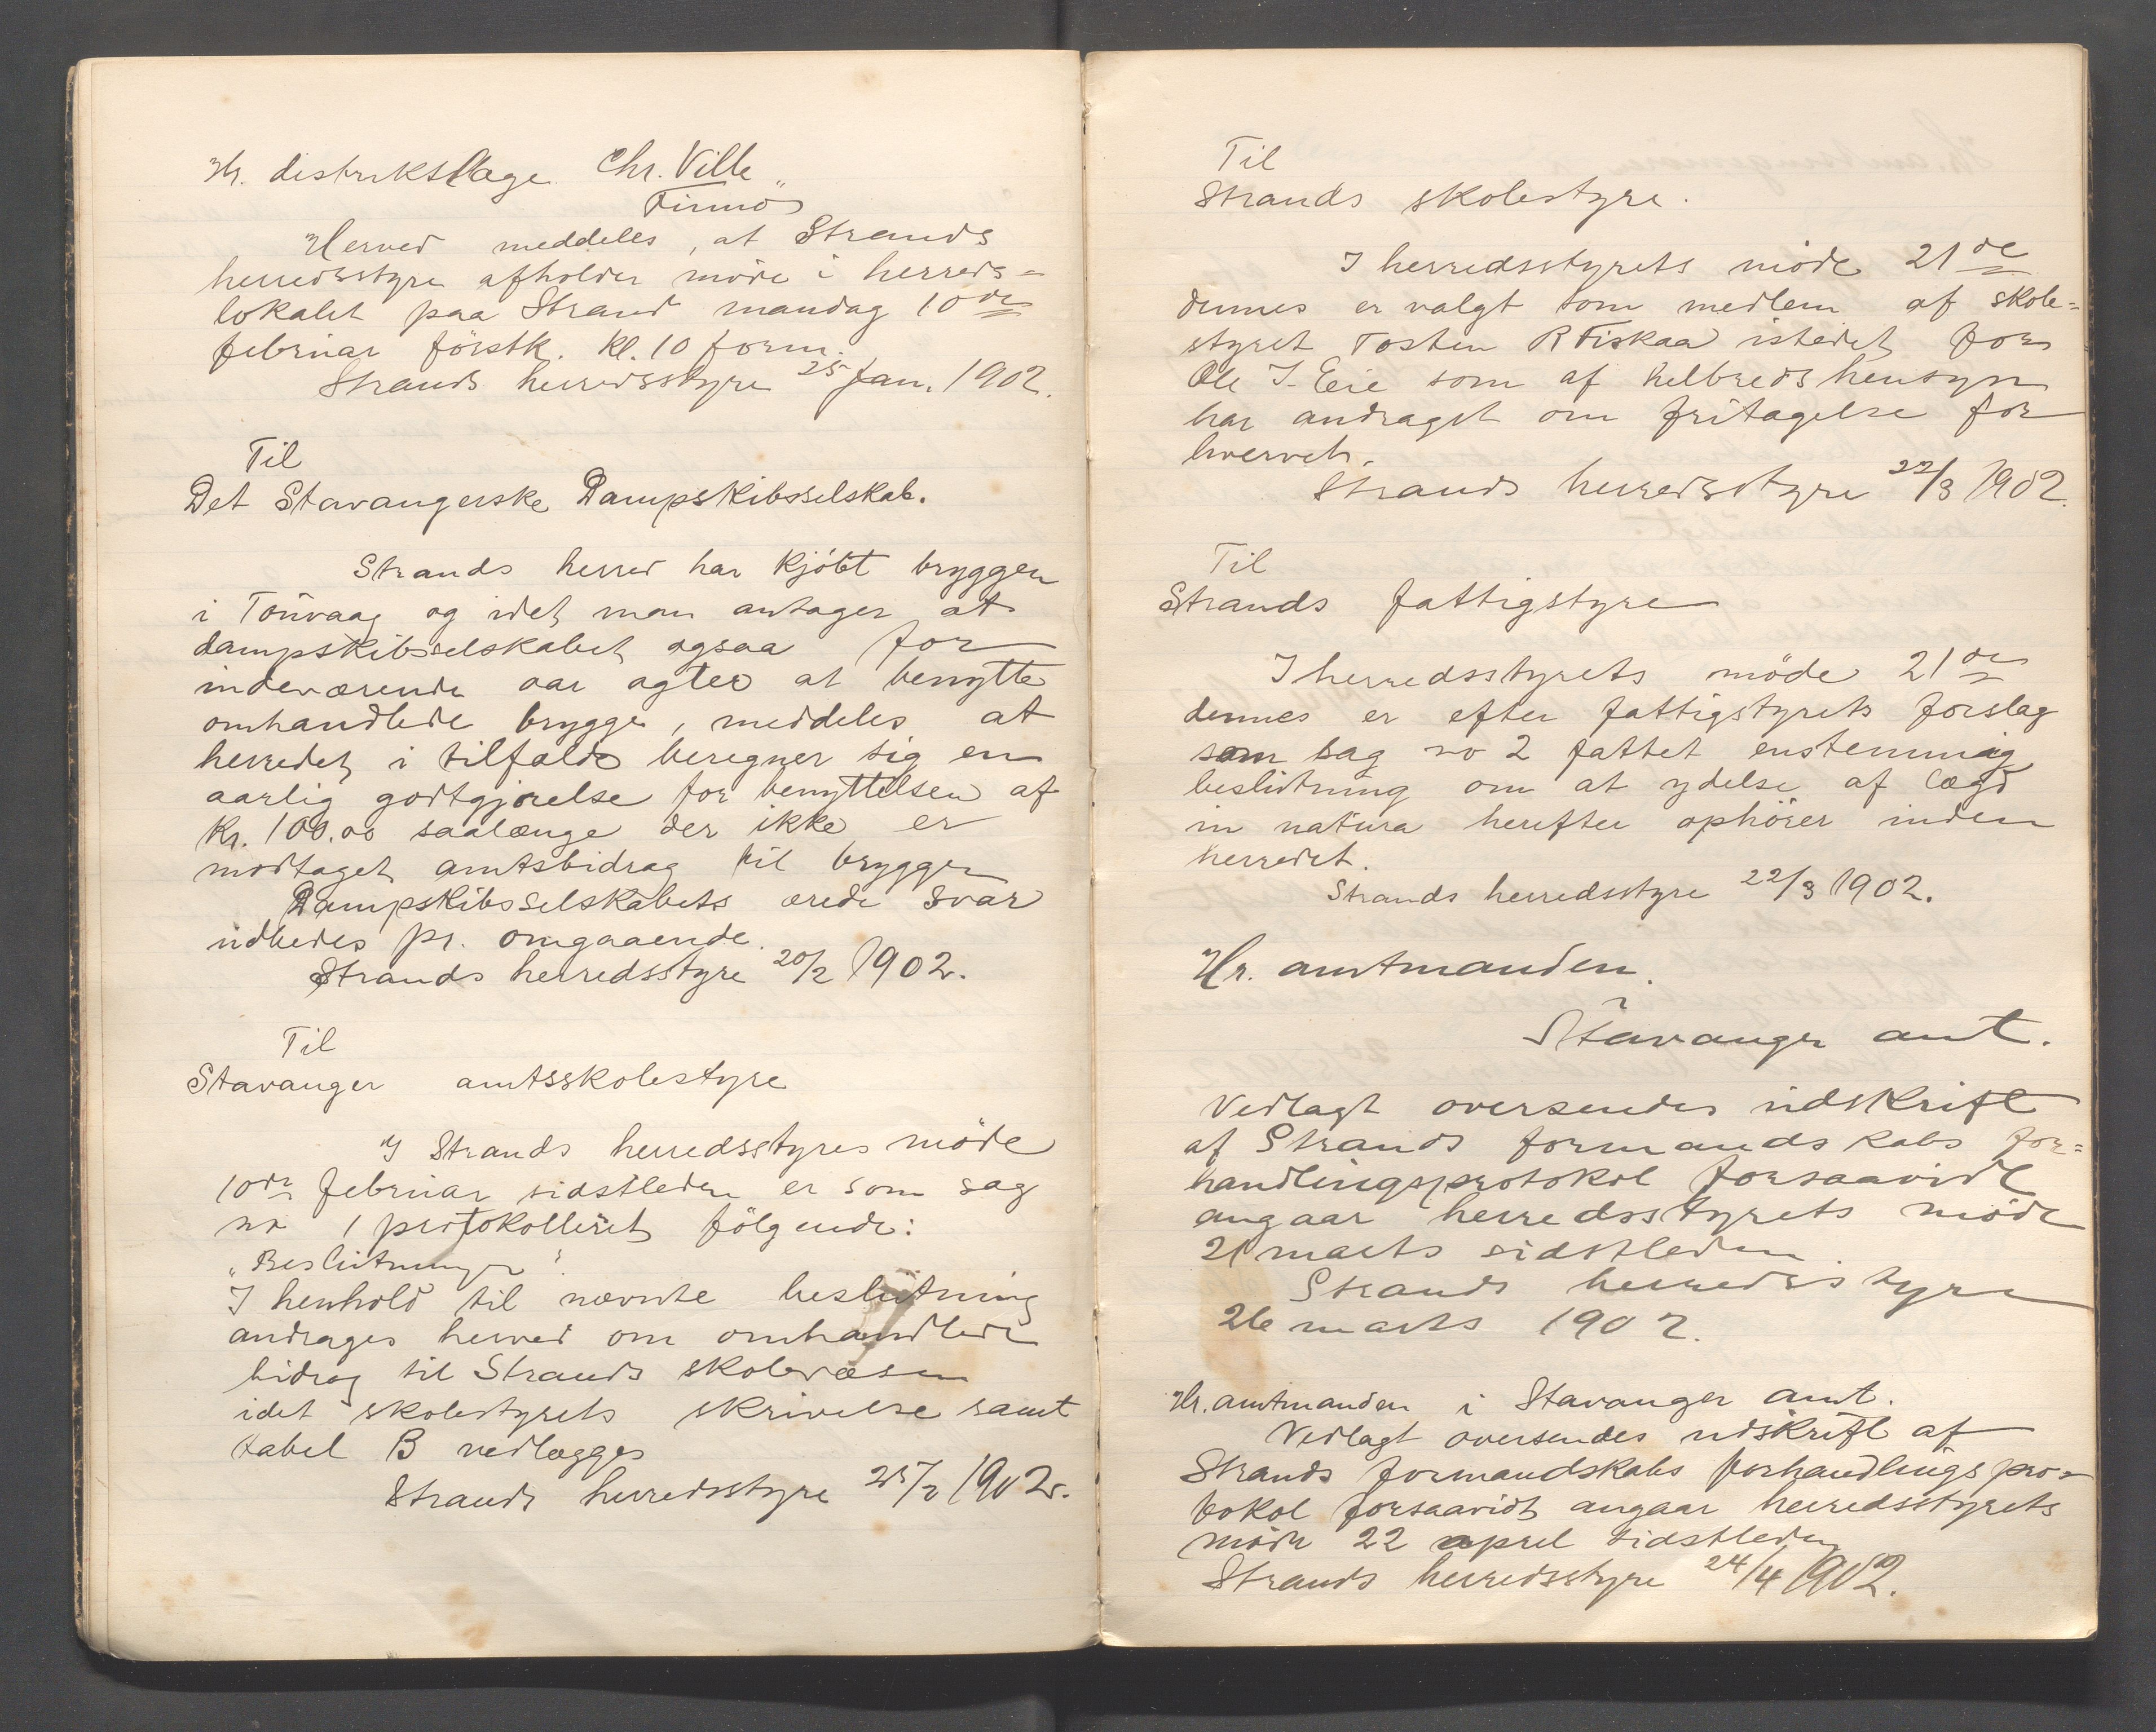 Hr. distriktslæge Chr. Ville
Finnö
Herved meddeles, at Strands
herredsstyre afholder møde i herreds=
lokalet paa Strand mandag 10de
februar förstk. kl. 10 form.
Strands herredsstyre 25 Jan. 1902.
Til
Det Stavangerske Dampskibsselskab.
Strands herred har kjöbt bryggen
i Touvaag og idet man antager at
dampskibsselskabet ogsaa for
indeværende aar agter at benytte
omhandlede brygge, meddeles at
herredet i tilfælde beregner sig en
aarlig godtgjørelse for benyttelsen af
Kr. 100.00 saalænge der ikke er
modtaget amtsbidrag til bryggen
Dampskibsselskabets ærede svar
udbedes pr. omgaaende.
Strands herredsstyre 20/2 1902.
Til
Stavanger amtsskolestyre
I Strands herredsstyres möde
10de februar sidstleden er som sag
no 1 protokolleret fölgende:
"Beslutninger".
I henhold til nævnte beslutning
andrages herved om omhandlede
bidrag til Strands skolevæsen
idet skolestyrets skrivelse samt
tabel B vedlægges
Strands herredsstyre 25/2 1902.
Til
Strands skolestyre.
I herredsstyrets möde 21de
dennes er valgt som medlem af skole=
styret Tosten R Fiskaa istedet for
Ole J. Eeie som af helbredshensyn
har andraget om fritagelse for
hvervet.
Strands herredsstyre 22/3 1902.
Til
Strands fattigstyre
I herredsstyrets möde 21de
dennes er efter fattigstyrets forslag
som sag no 2 fattet enstemmig
beslutning om at ydelse af lægd
in natura herefter ophörer inden
herredet.
Strands herredsstyre 22/3 1902.
Hr. amtmanden.
i Stavanger amt.
Vedlagt oversendes udskrift
af Strands formandskabs for=
handlingsprotokol forsaavidt
angaar herredsstyrets möde
21 marts sidstleden.
Strands herredsstyre
26 marts 1902.
Hr. amtmanden i Stavanger amt.
Vedlagt oversendes udskrift af
Strands formandskabs forhandlingspro=
tokol forsaavidt angaar herredsstyrets
möde 22 april sidstleden
Strands herredsstyre 24/4 1902.